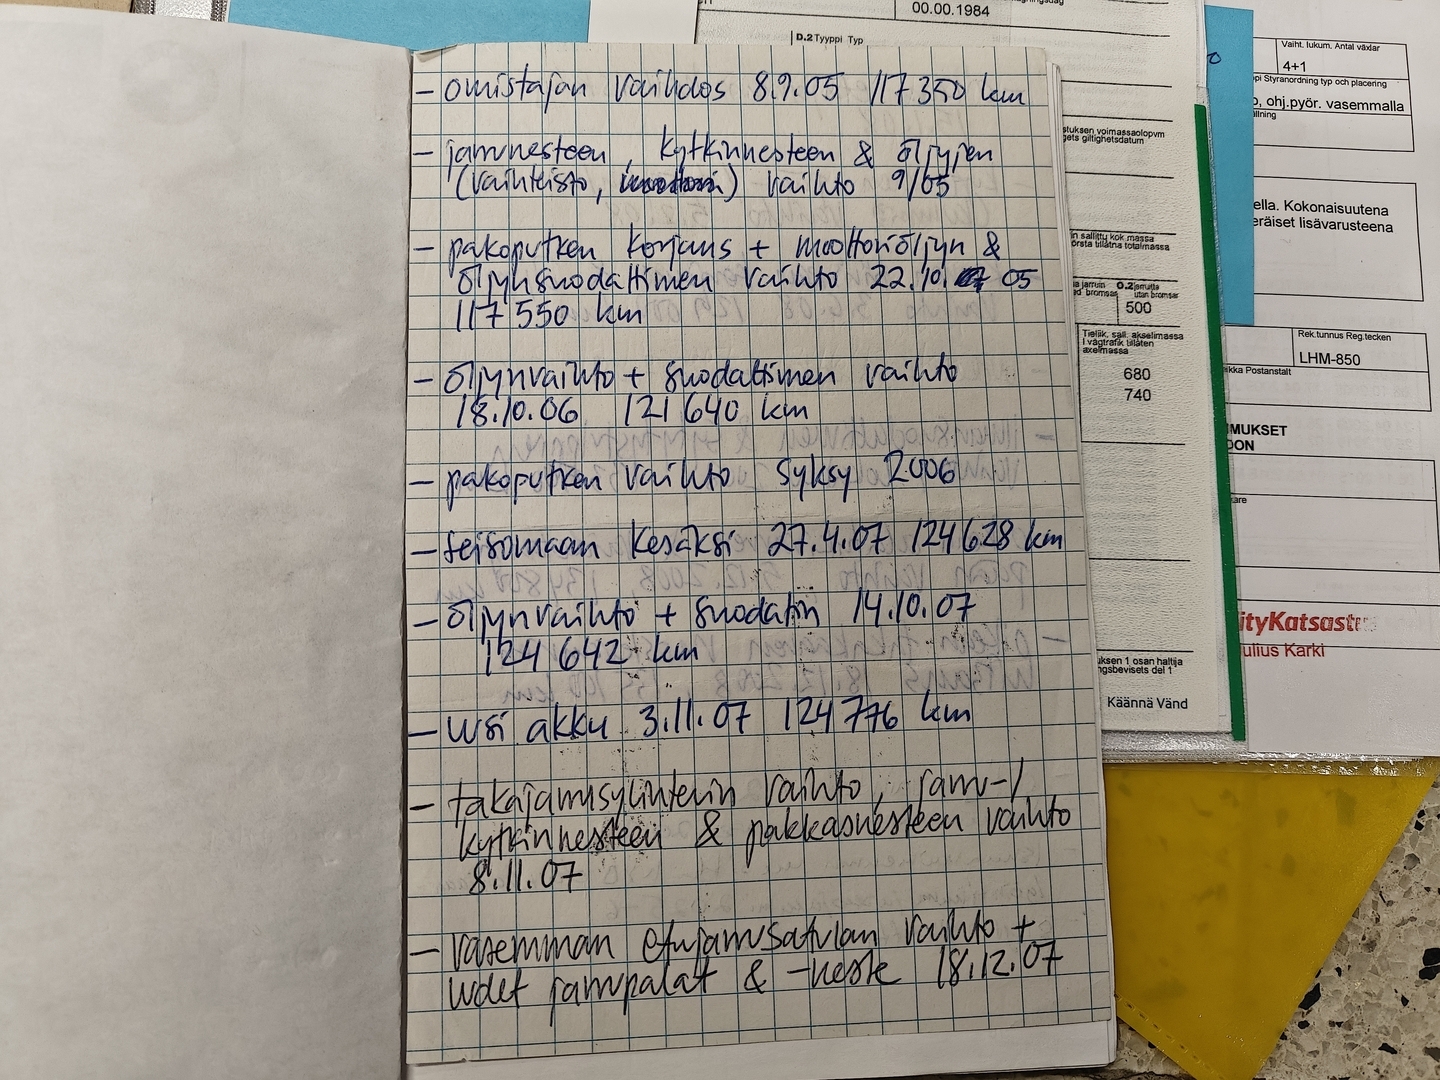 - omistajan vaihdos 8.9.05 117 350 km
- jarrunesteen, kytkinnesteen & öljyjen
(vaihteisto, ) vaihto 9/05
- pakoputken korjaus + moottoriöljyn &
öljynsuodattimen vaihto 22.10. 05
117 550 km
- öljynvaihto + suodattimen vaihto
18.10.06 121 640 km
- pakoputken vaihto syksy 2006
- seisomaan kesäksi 27.4.07 124 628 km
- öljynvaihto + suodatin 14.10.07
124 642 km
- uusi akku 3.11.07 124 776 km
- takajarrusylinterin vaihto, jarru-/
kytkinnesteen & pakkasnesteen vaihto
8.11.07
- vasemman etujarrusatulan vaihto +
uudet jarrupalat & -neste 18.12.07
00.00.1984
D.2 Tyyppi Typ
tuksen voimassaolopvm
gets giltighetsdatum
n sallittu kok.massa
örsta tillåtna totalmassa
O.2 jarruitta
utan bromsar
500
Tieliik. sall. akselimassa
I vägtrafik tillåten
axelmassa
680
740
uksen 1 osan haltija
ngsbevisets del 1
Käännä Vänd
Vaiht. lukum. Antal växlar
4+1
pi Styranordning typ och placering
o, ohj.pyör. vasemmalla
ella. Kokonaisuutena
eräiset lisävarusteena
Rek.tunnus Reg.tecken
LHM-850
ikka Postanstalt
MUKSET
OON
are
ityKatsast
ulius Karki